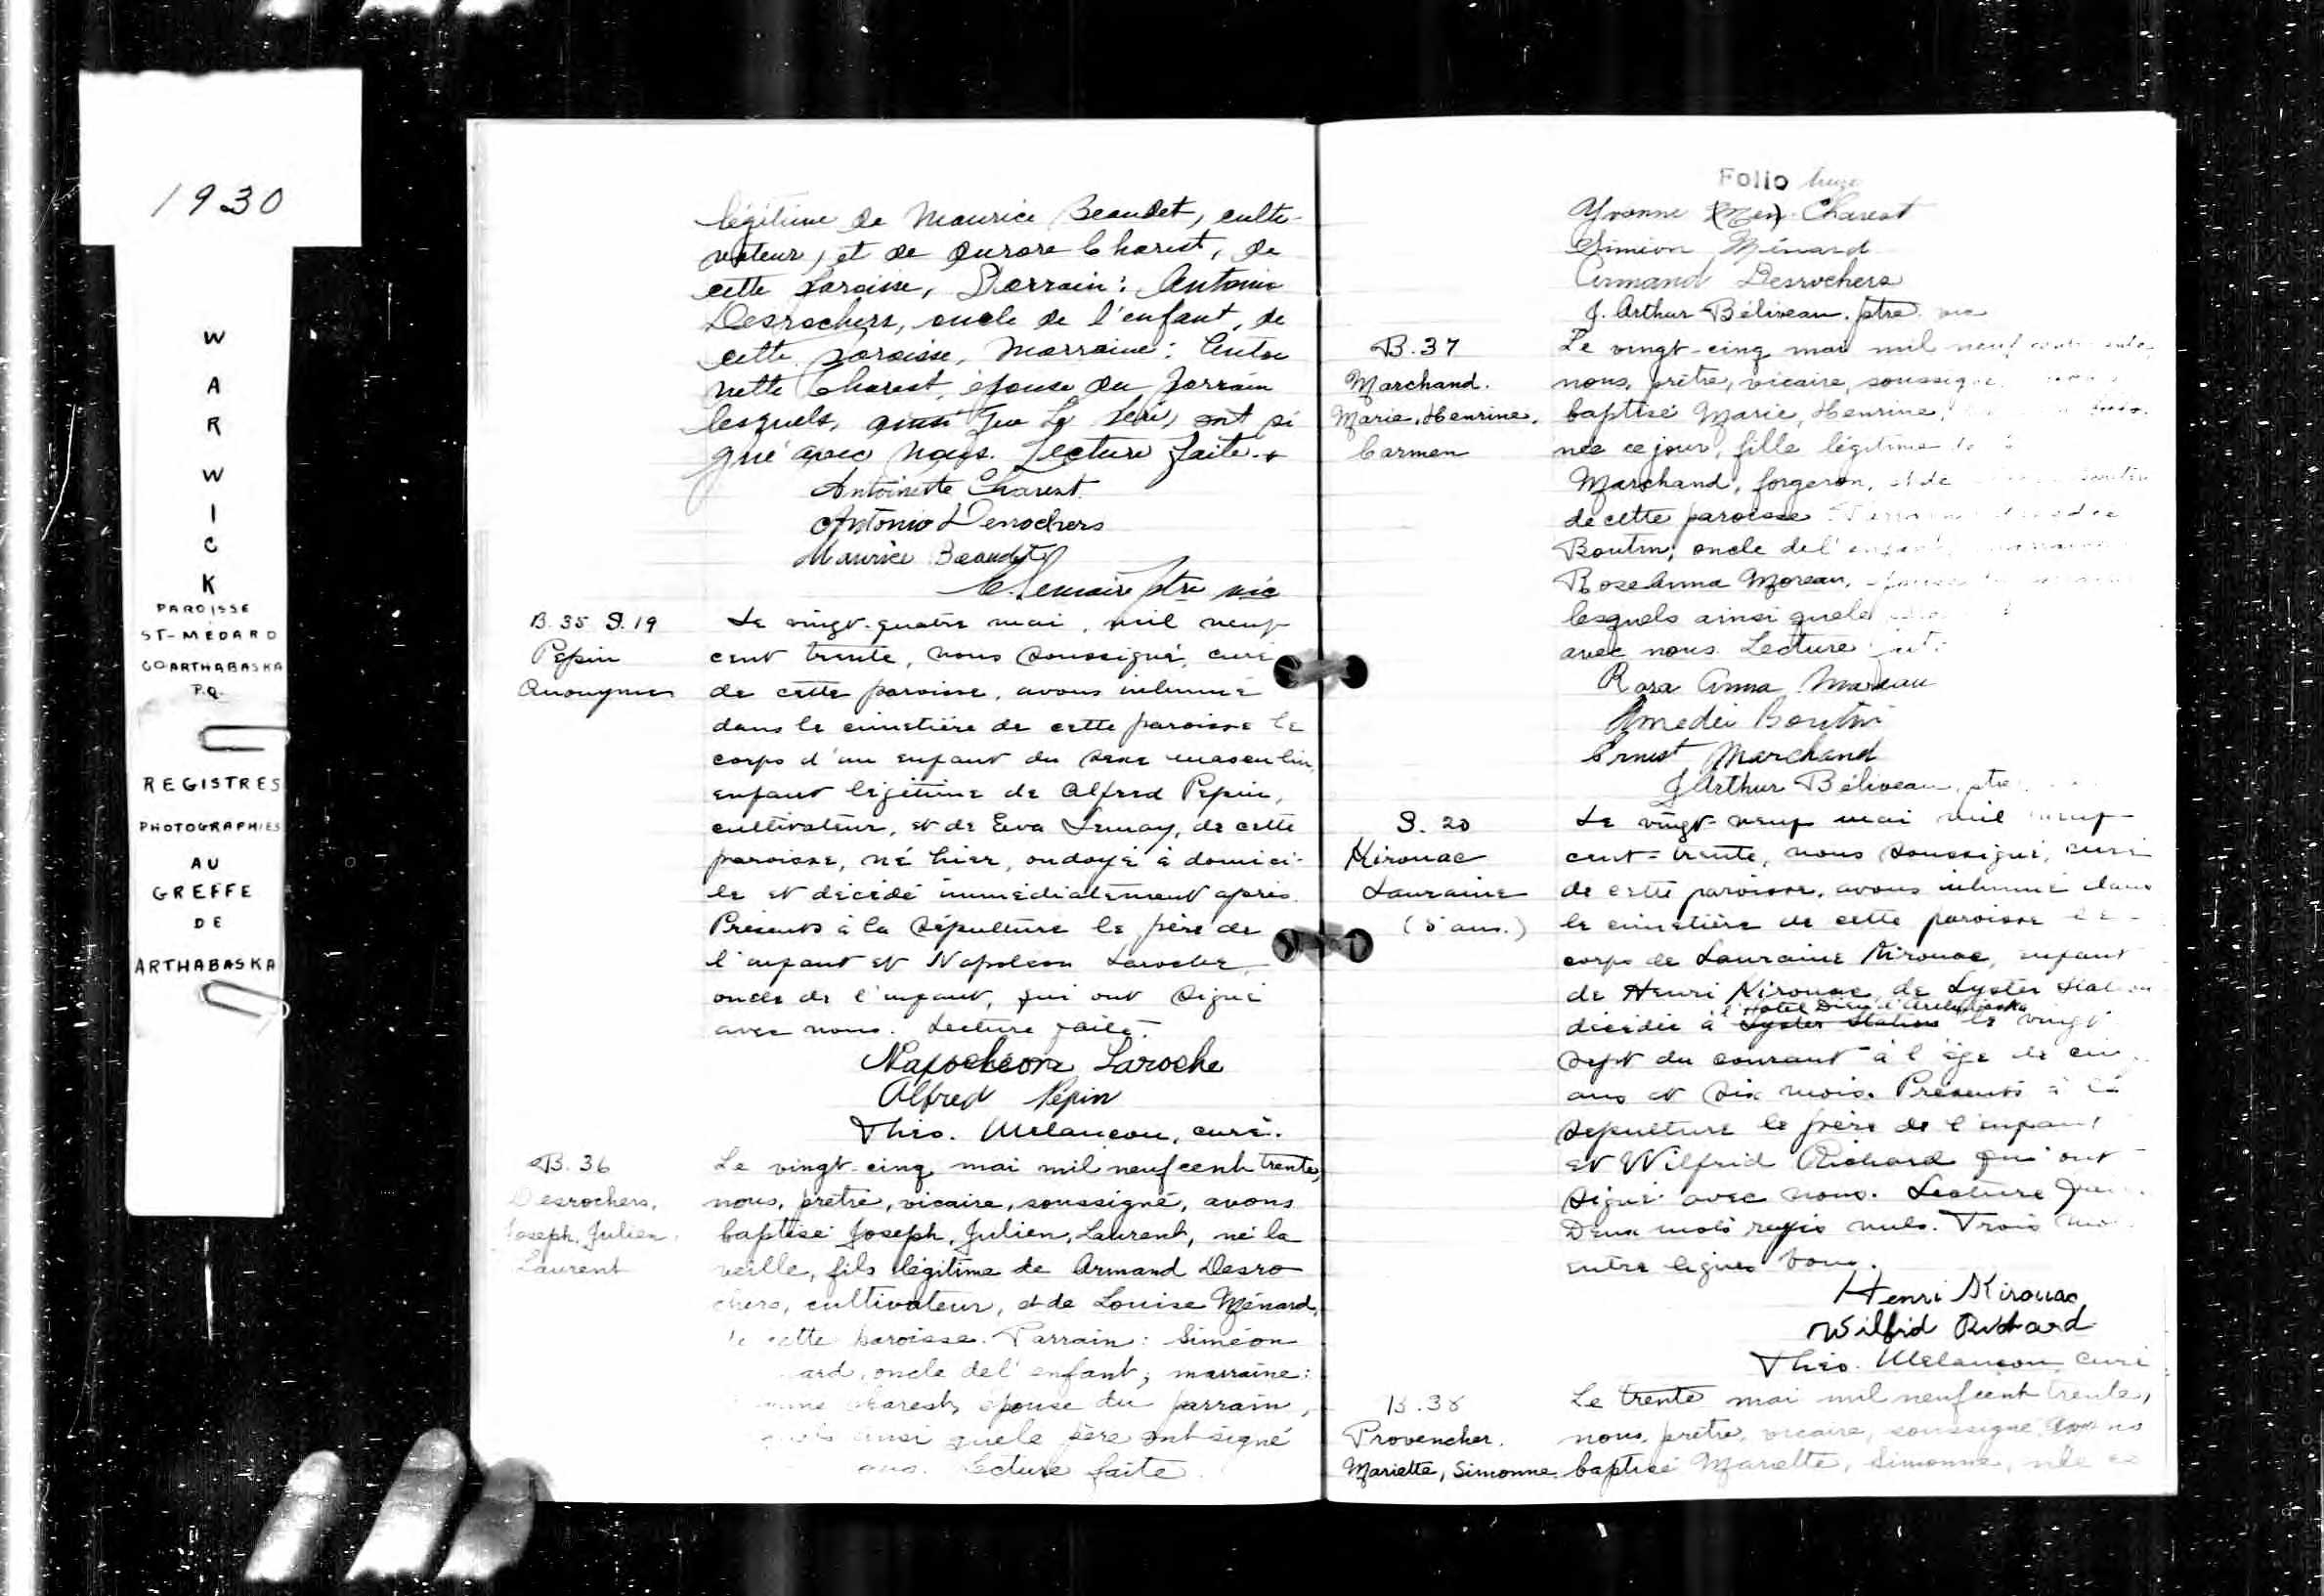 1930
W
A
R
W
I
C
K
PAROISSE
ST-MÉDARD
CO ARTHABASKA
P.Q.
REGISTRES
PHOTOGRAPHIES
AU
GREFFE
DE
ARTHABASKA
légitime de Maurice Beaudet, culti-
vateur, et de Aurore Charest, de
cette paroisse, Parrain: Antonio
Desrochers, oncle de l'enfant, de
cette paroisse, Marraine: Antoi
nette Charest, épouse du parrain
lesquels, ainsi que le père, ont si
gné avec nous. Lecture faite.
Antoinette Charest
Antonio Desrochers
Maurice Beaudet
C. Lemaire ptre vic
B. 35 S. 19
Pepin
Anonyme
Le vingt-quatre mai, mil neuf
cent trente, nous soussigné, curé
de cette paroisse, avons inhumé
dans le cimetière de cette paroisse le
corps d'un enfant du sexe masculin,
enfant légitime de Alfred Pepin,
cultivateur, et de Eva Lemay, de cette
paroisse, né hier, ondoyé à domici-
le et décédé immédiatement après.
Présents à la sépulture le père de
l'enfant et Napoléon Laroche,
oncle de l'enfant, qui ont signé
avec nous. Lecture faite.
Napoleon Laroche
Alfred Pépin
Théo. Melançon, curé.
B. 36
Desrochers,
Joseph, Julien,
Laurent
Le vingt-cinq mai mil neuf cent trente,
nous, prêtre, vicaire, soussigné, avons
baptisé Joseph, Julien, Laurent, né la
veille, fils légitime de Armand Desro
chers, cultivateur, et de Louise Ménard,
de cette paroisse. Parrain: Siméon
ard, oncle de l'enfant; marraine:
Charest, épouse du parrain,
ainsi que le père ont signé
Lecture faite.
Folio
Yvonne (Men) Charest
Siméon Ménard
Armand Desrochers
J. Arthur Béliveau, ptre vic
B. 37
Marchand.
Marie, Henrine,
Carmen
Le vingt-cinq mai mil neuf cent
nous, prêtre, vicaire, soussigné,
baptisé Marie, Henrine,
née ce jour, fille légitime
Marchand, forgeron, et de
de cette paroisse
Boutin, oncle de l'enfant,
Rose Anna Moreau,
lesquels ainsi que le
avec nous. Lecture
Rosa Anna Moreau
Amedée Boutin
Ernest Marchand
J Arthur Béliveau, ptre
S. 20
Kirouac
Lauraine
(5 ans.)
Le vingt-neuf mai mil neuf
cent-trente, nous soussigné, curé
de cette paroisse, avons inhumé dans
le cimetière de cette paroisse le
corps de Lauraine Kirouac, enfant
de Henri Kirouac, de Lyster Station
l'Hôtel Dieu d'Arthabaska
décédée à Lyster Station le vingt
sept du courant à l'âge de cinq
ans et six mois. Présents à la
sépulture le père de l'enfant
et Wilfrid Richard qui ont
signé avec nous. Lecture
Deux mots rayés nuls. Trois
entre lignes bons.
Henri Kirouac
Wilfrid Richard
Théo. Melançon curé
B. 38
Provencher.
Mariette, Simonne
Le trente mai mil neuf cent trente,
nous, prêtre, vicaire, soussigné, avons
baptisé Mariette, Simonne, née ce